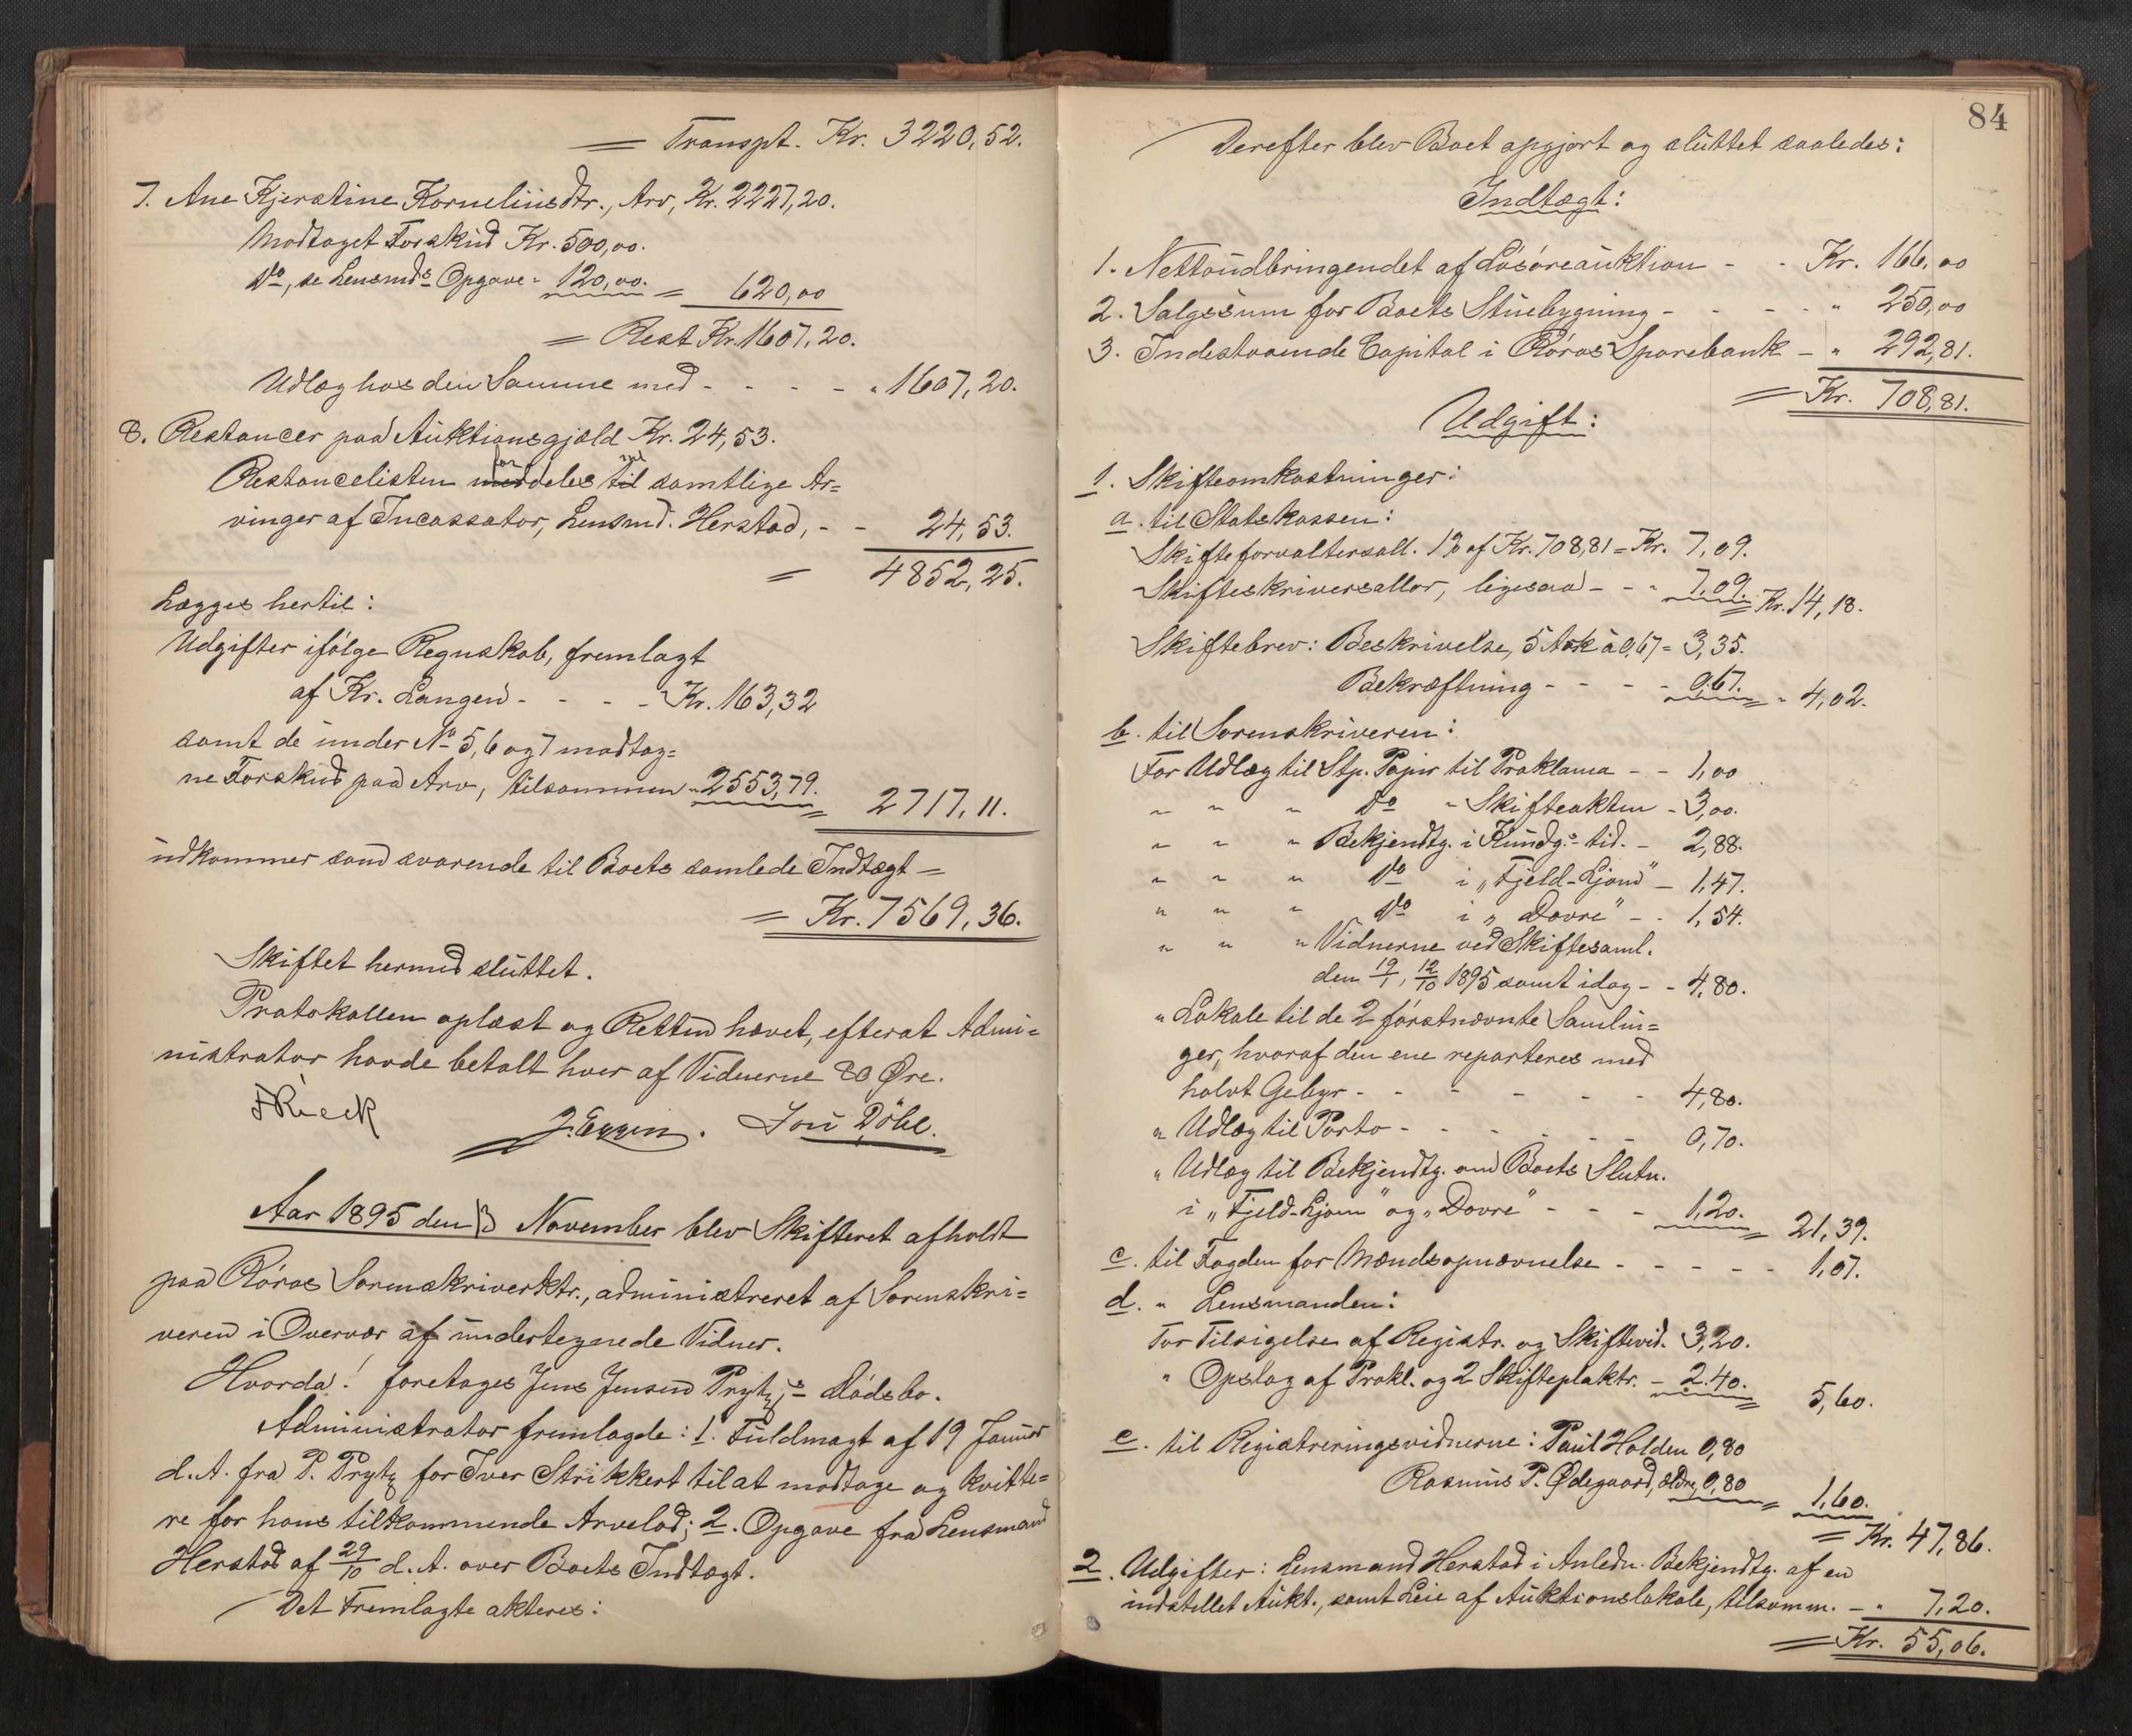 = Transpt. Kr. 3220,52.
7. Ane Kjerstine Korneliusdtr., Arv, Kr. 2227,20.
Modtaget Forskud Kr. 500,00.
do, se Lensmds Opgave " 120,00. = 620,00
= Rest Kr. 1607,20.
Udlæg hos den Samme med - - - - " 1607,20.
8. Restancer paa Auktionsgjæld Kr. 24,53.
Restancelisten meddeles til samtlige Ar=
vinger af Incassator, Lensmd. Herstad, - - 24,53.
= 4852,25.
Lægges hertil:
Udgifter ifølge Regnskab, fremlagt
af Kr. Langen - - - - Kr. 163,32
samt de under No 5, 6 og 7 modtag=
ne Forskud paa Arv, tilsammen " 2553,79. = 2717,11.
udkommer som svarende til Boets samlede Indtægt =
= Kr. 7569,36.
Skiftet hermed sluttet.
Protokollen oplæst og Retten hævet, efterat Admi=
nistrator havde betalt hver af Vidnerne 80 Øre.
Rieck
J. Eggen. Jon Döhl.
Aar 1895 den 13 November blev Skifteret afholdt
paa Röros Sorenskriverktr., administreret af Sorenskri=
veren i Overvær af undertegnede Vidner.
Hvorda! foretages Jens Jensen Prytz's Dödsbo.
Administrator fremlagde: 1. Fuldmagt af 19 Januar
d. A. fra P. Prytz for Iver Strikkert til at modtage og kvitte=
re for hans tilkommende Arvelod; 2. Opgave fra Lensmand
Herstad af 29/10 d. A. over Boets Indtægt.
Det Fremlagte akteres:
84
Derefter blev Boet opgjort og sluttet saaledes:
Indtægt:
1. Nettoudbringendet af Lösöreauktion - - Kr. 166,00
2. Salgssum for Boets Stuebygning - - - - " 250,00
3. Indestaaende Capital i Röros Sparebank - " 292,81.
= Kr. 708,81.
Udgift:
1. Skifteomkostninger:
a. til Statskassen:
Skifteforvaltersall. 1% af Kr. 708,81 = Kr. 7,09.
Skifteskriversallar, ligesaa - - " 7,09. = Kr. 14,18.
Skiftebrev: Beskrivelse, 5 Ark à 0,67 = 3,35.
Bekræftning - - - - 0,67. = " 4,02.
b. til Sorenskriveren:
For Udlæg til Stp. Papir til Proklama - - 1,00
" " " do " Skifteakten - 3,00.
" " " Bekjendtg. i Kundg.s tid. - 2,88.
" " " do i „Fjeld-Ljom" - 1,47.
" " " do i „Dovre" - - 1,54.
" " " Vidnerne ved Skiftesaml.
den 19/1, 12/10 1895 samt idag - - 4,80.
" Lokale til de 2 förstnævnte Samlin=
ger, hvoraf den ene reparteres med
halvt Gebyr - - - - - - 4,80.
" Udlæg til Porto - - - - - - 0,70.
" Udlæg til Bekjendtg. om Boets Slutn.
i „Fjeld-Ljom" og „Dovre" - - - 1,20. = 21,39.
c. til Fogden for Mændsopnævnelse - - - - - 1,07.
d. " Lensmanden:
For Tilsigelse af Registr. og Skiftevid. 3,20.
" Opslag af Prokl. og 2 Skifteplaktr. - 2.40. = 5,60.
e. til Registreringsvidnerne: Paul Holden 0,80
Rasmus P. Ødegaard, ældre, 0,80 = 1,60.
= Kr. 47,86.
2. Udgifter: Lensmand Herstad i Anledn. Bekjendtg. af en
indstillet Aukt., samt Leie af Auktionslokale, tilsamm. - " 7,20.
= Kr. 55,06.